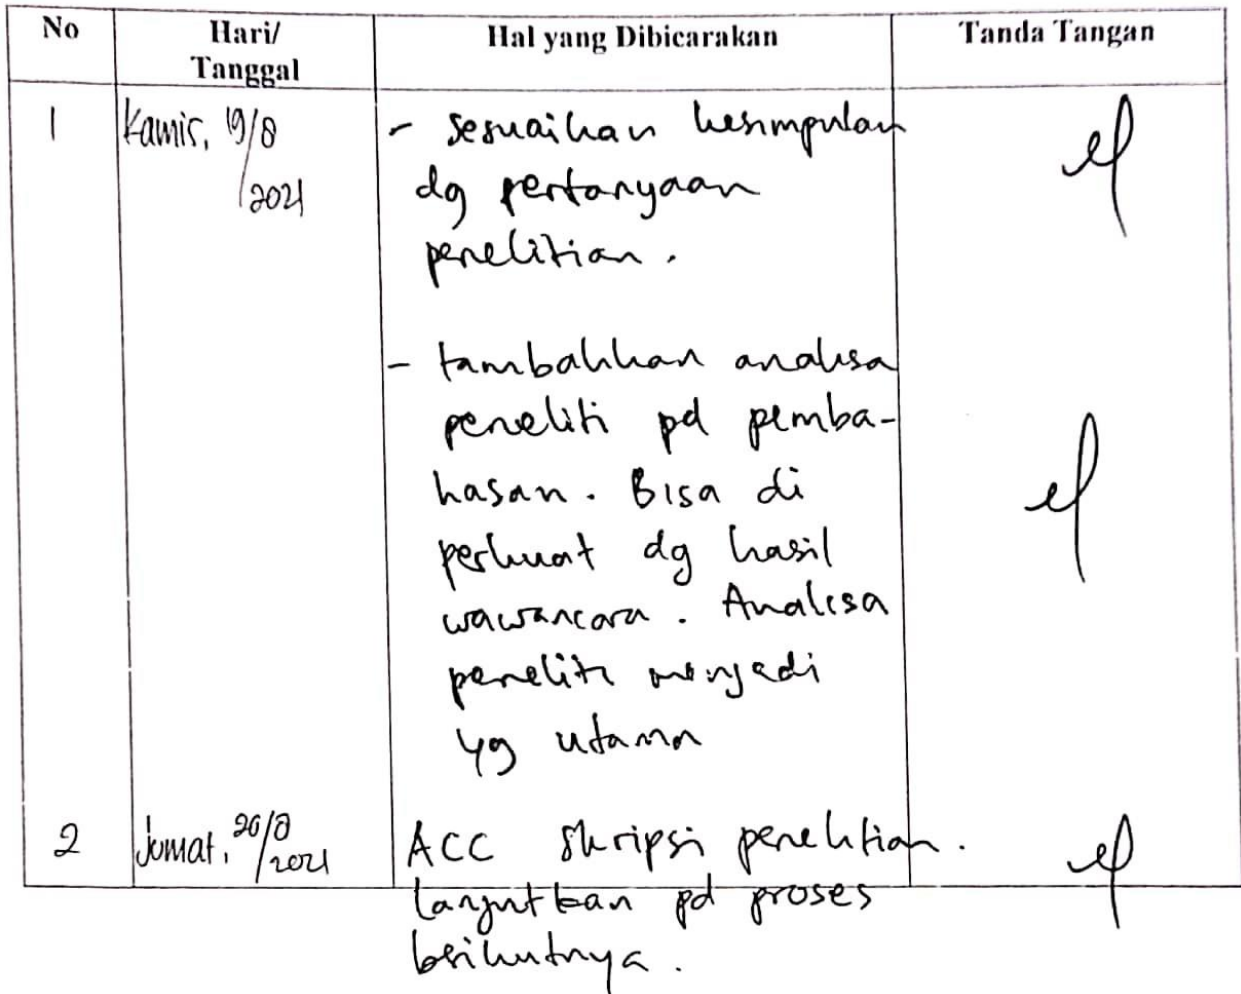 No Hari/ Hal yang Dibicarakan Tanda Tangan
Tanggal
1 Kamis, 19/8 - sesuaikan kesimpulan
/2021 dg pertanyaan
penelitian.
- tambahkan analisa
peneliti pd pemba-
hasan. Bisa di
perkuat dg hasil
wawancara. Analisa
peneliti menjadi
yg utama
2 Jumat, 20/8 ACC skripsi penelitian.
/2021 lanjutkan pd proses
berikutnya.